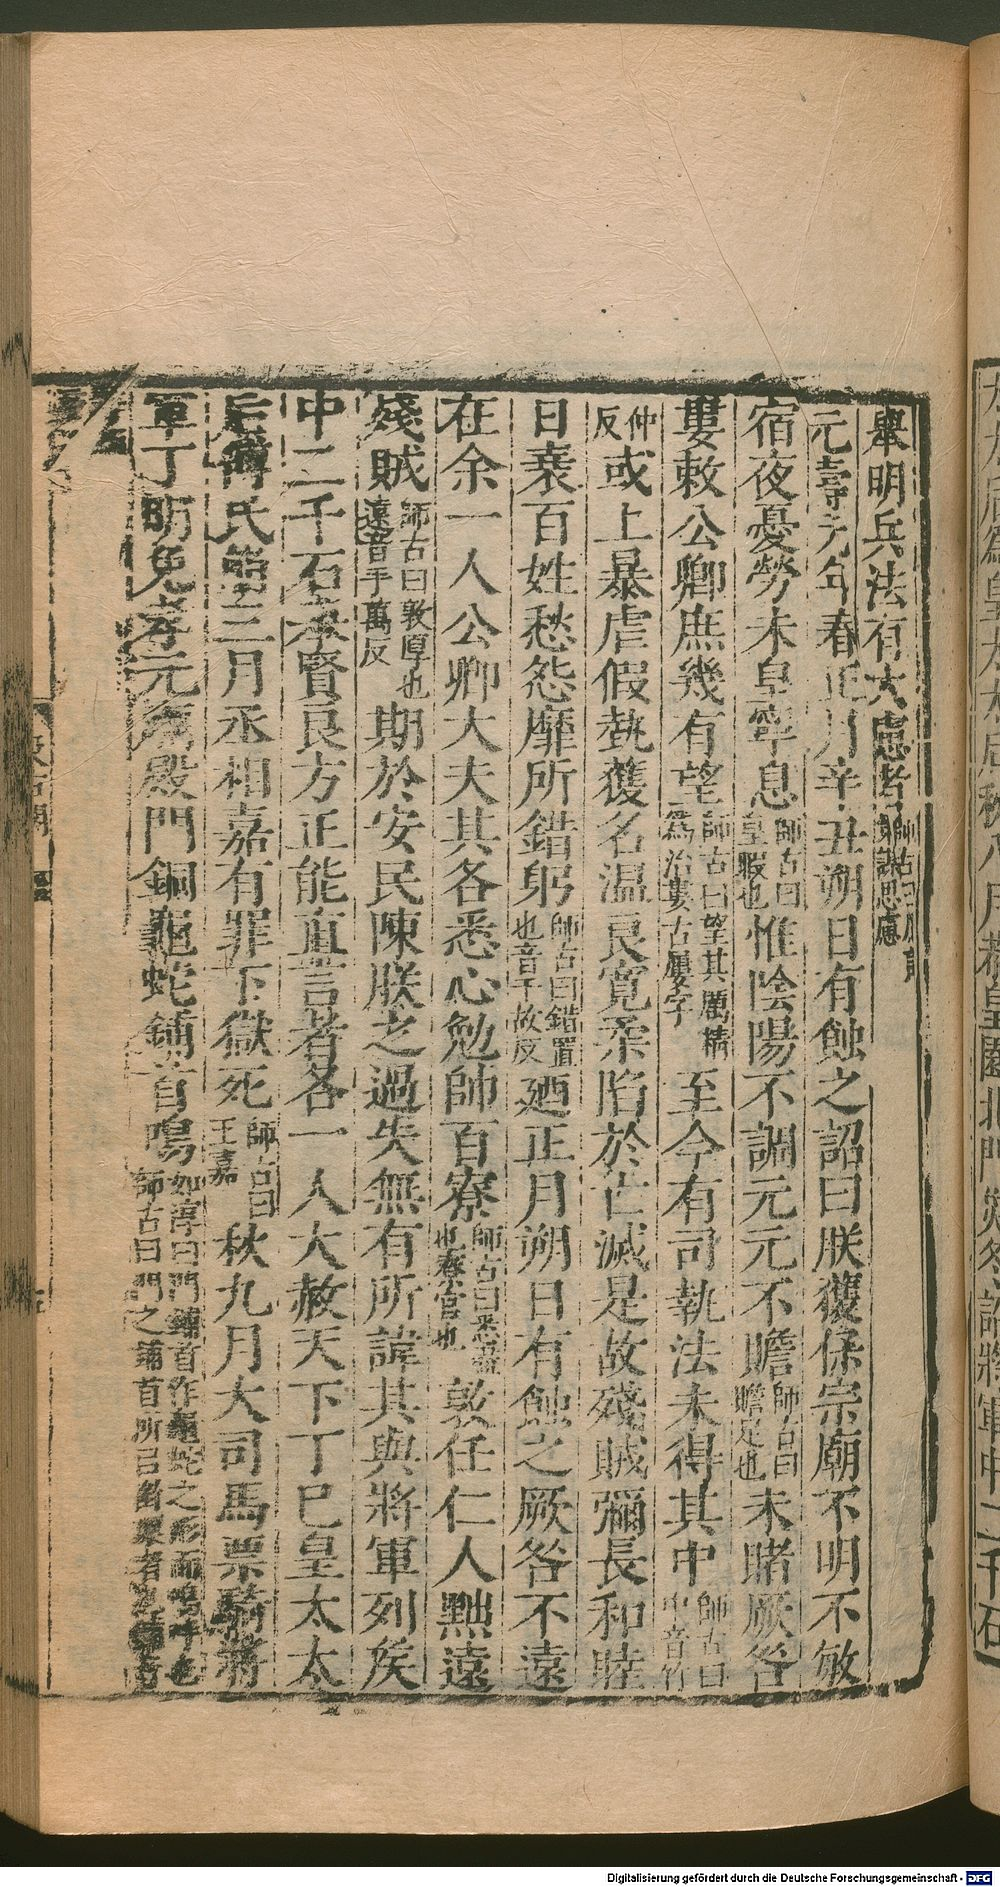 舉明兵法有大慮者師古曰慮謀思慮
元壽元年春正月辛丑朔日有蝕之詔曰朕獲保宗廟不明不敏
宿夜憂勞未皇寧息師古曰皇暇也惟陰陽不調元元不贍師古曰贍足也未睹厥咎
婁敕公卿庶幾有望師古曰望其厲精為治婁古屢字至今有司執法未得其中師古曰中音竹
仲反或上暴虐假埶獲名温良寛柔陷於亡滅是故殘賊彌長和睦
日衰百姓愁怨靡所錯躬師古曰錯置也音千故反廼正月朔日有蝕之厥咎不遠
在余一人公卿大夫其各悉心勉帥百寮師古曰悉盡也寮官也敦任仁人黜遠
殘賊師古曰敦厚也遠音于萬反期於安民陳朕之過失無有所諱其與將軍列矦
中二千石舉賢良方正能直言者各一人大赦天下丁巳皇太太
后傅氏崩三月丞相嘉有罪下獄死師古曰王嘉秋九月大司馬票騎將
軍丁明免孝元廟殿門銅龜蛇鋪首鳴如淳曰門鋪首作龜蛇之形而鳴呼也師古曰門之鋪首所以銜環者也
汲古閣
Digitalisierung gefördert durch die Deutsche Forschungsgemeinschaft - DFG